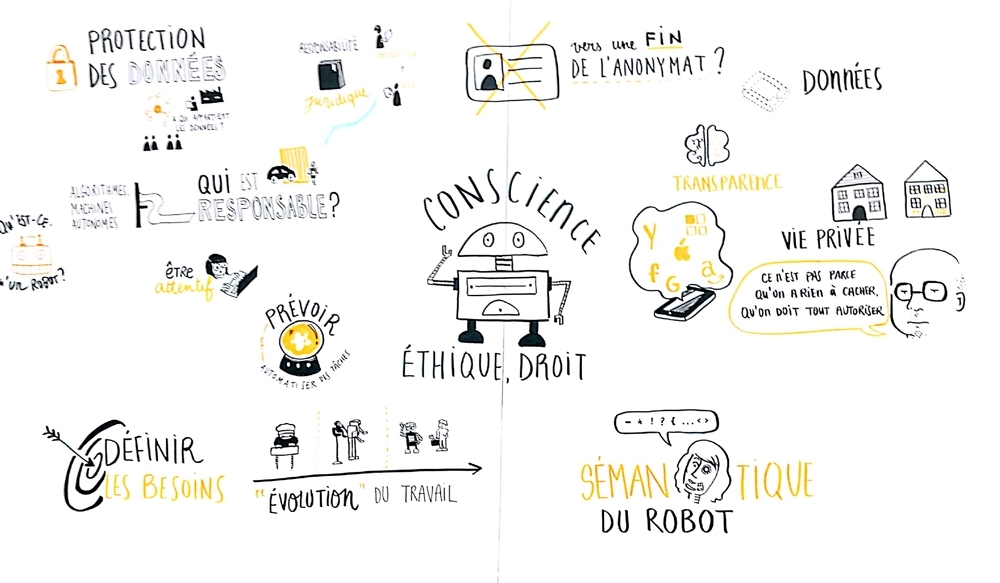 PROTECTION
DES DONNÉES
À QUI APPARTIENT
LES DONNÉES ?
RESPONSABILITÉ
juridique
vers une FIN
DE L'ANONYMAT ?
DONNÉES
ALGORITHMES
MACHINES
AUTONOMES
QUI EST
RESPONSABLE ?
QU'EST-CE
QU'UN ROBOT ?
être
attentif
PRÉVOIR
AUTOMATISER DES TÂCHES
CONSCIENCE
ÉTHIQUE, DROIT
TRANSPARENCE
Y
f G a
VIE PRIVÉE
CE N'EST PAS PARCE
QU'ON A RIEN À CACHER,
QU'ON DOIT TOUT AUTORISER
DÉFINIR
LES BESOINS
"ÉVOLUTION" DU TRAVAIL
- * ! ? { ... < >
SÉMANTIQUE
DU ROBOT